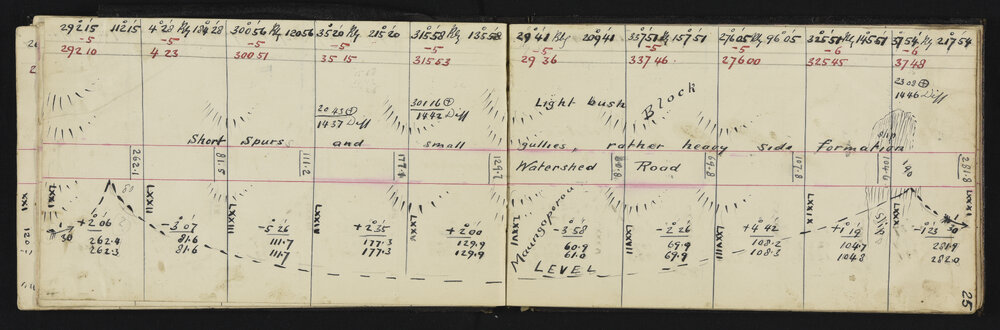 29°15 112°15 4°28 Rly 184°28 300°56 Rly 120°56 35°20 Rly 215°20 315°58 Rly 135°58
-5 -5 -5 -5 -5
29 210 4 23 300 51 35 15 315 53
29°41 Rly 209°41 337°51 Rly 157°51 276°05 Rly 96°05 325°51 Rly 145°51 37°54 Rly 217°54
-5 -5 -5 -6 -6
29 36 337 46 276 00 325 45 37 48
20 43
1437 Diff
301 16
1442 Diff
2302
1446 Diff
Light bush
Block
Short Spurs and small gullies, rather heavy side formation
262.1 81.5 111.2 177.1 129.7
Watershed Road
69.8 107.8 104.6 281.8
LXXI LXXII LXXIII LXXIV LXXV
LXXVI LXXVII LXXVIII LXXIX LXXX LXXXI
Maungaparu
Slip
30 +2°06 -3°07 -5°26 +2°35 +2°00
262.4 81.6 111.7 177.3 129.9
262.3 81.6 111.7 177.3 129.9
-3°58 -2°26 +4°42 +1°19 -1°23 30
60.9 69.9 108.2 104.7 281.9
61.0 69.9 108.3 104.8 282.0
LEVEL
25